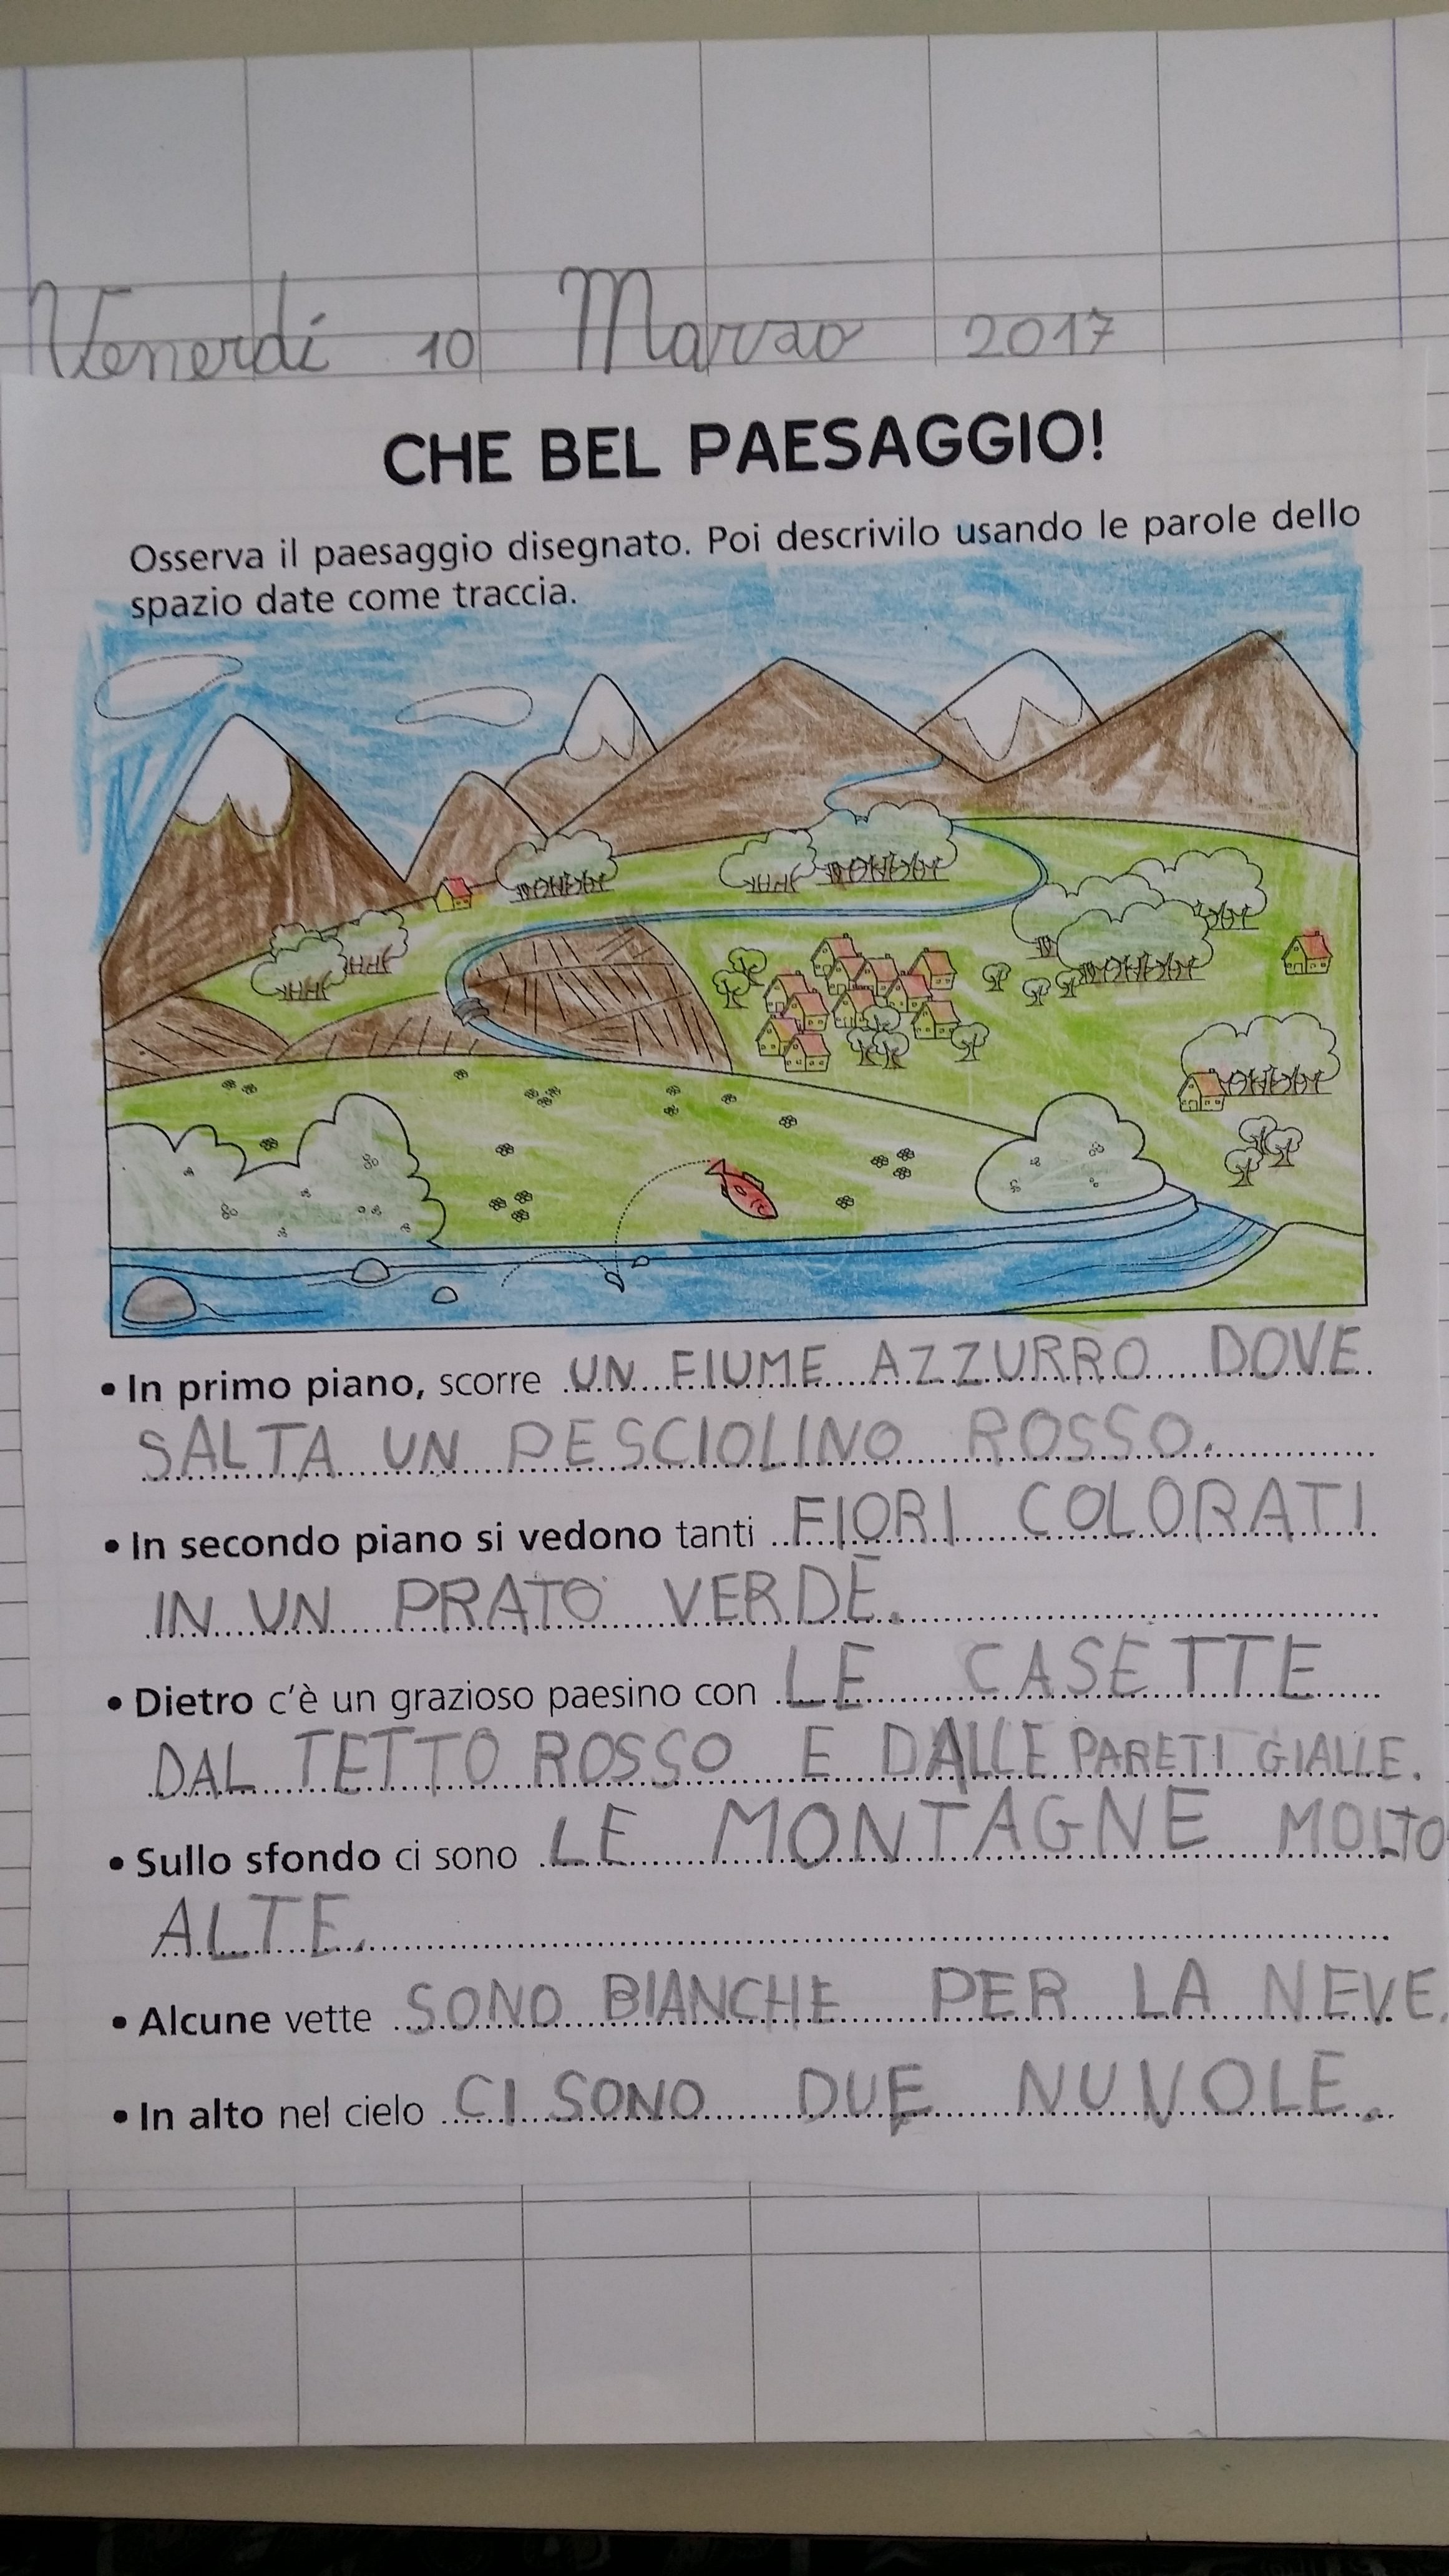 Venerdí 10 Marzo 2017
CHE BEL PAESAGGIO!
Osserva il paesaggio disegnato. Poi descrivilo usando le parole dello
spazio date come traccia.
• In primo piano, scorre UN FIUME AZZURRO DOVE
SALTA UN PESCIOLINO ROSSO.
• In secondo piano si vedono tanti FIORI COLORATI
IN UN PRATO VERDE.
• Dietro c'è un grazioso paesino con LE CASETTE
DAL TETTO ROSSO E DALLE PARETI GIALLE.
• Sullo sfondo ci sono LE MONTAGNE MOLTO
ALTE.
• Alcune vette SONO BIANCHE PER LA NEVE.
• In alto nel cielo CI SONO DUE NUVOLE.